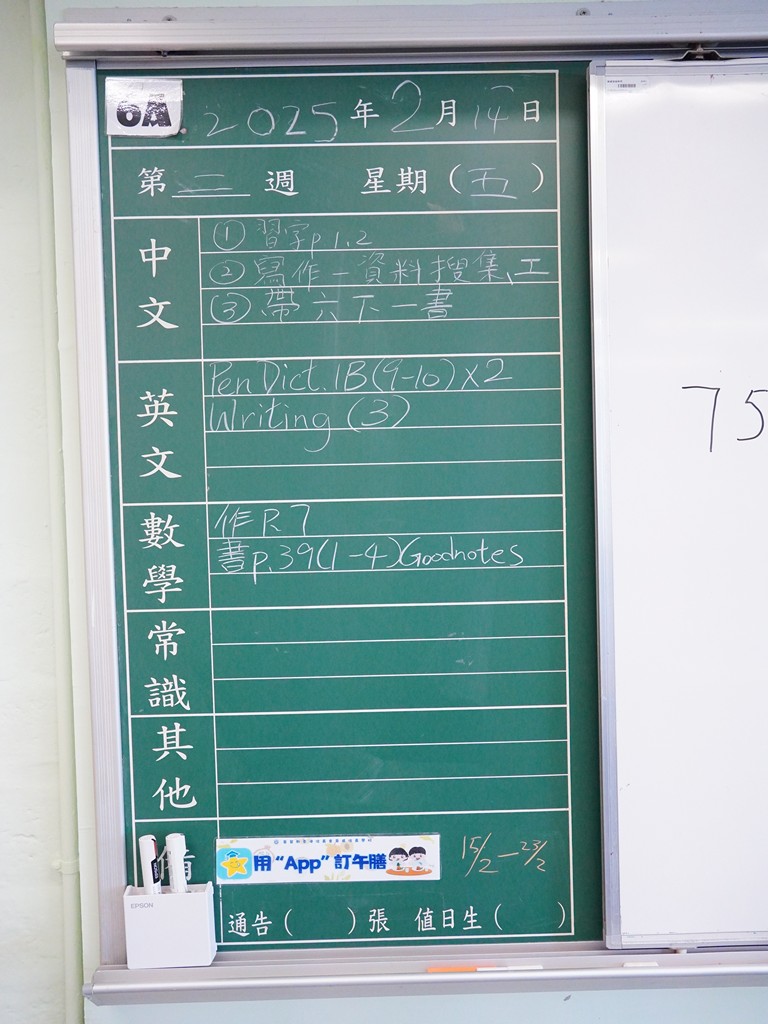 6A
2025年2月14日
第二週 星期（五）
中文
①習字p1.2
②寫作－資料搜集、工
③帶六下一書
英文
Pen Dict. 1B(9-10)x2
Writing (3)
數學
作R7
書p.39(1-4)Goodnotes
常識
其他
用“App”訂午膳
15/2—23/2
通告（ ）張 值日生（ ）
EPSON
75